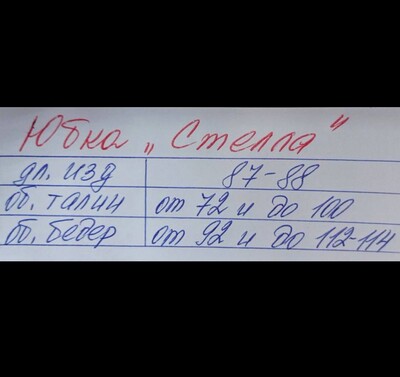 Юбка „Стелла"
дл. изд 87-88
об. талии от 72 и до 100
об. бедер от 92 и до 112-114